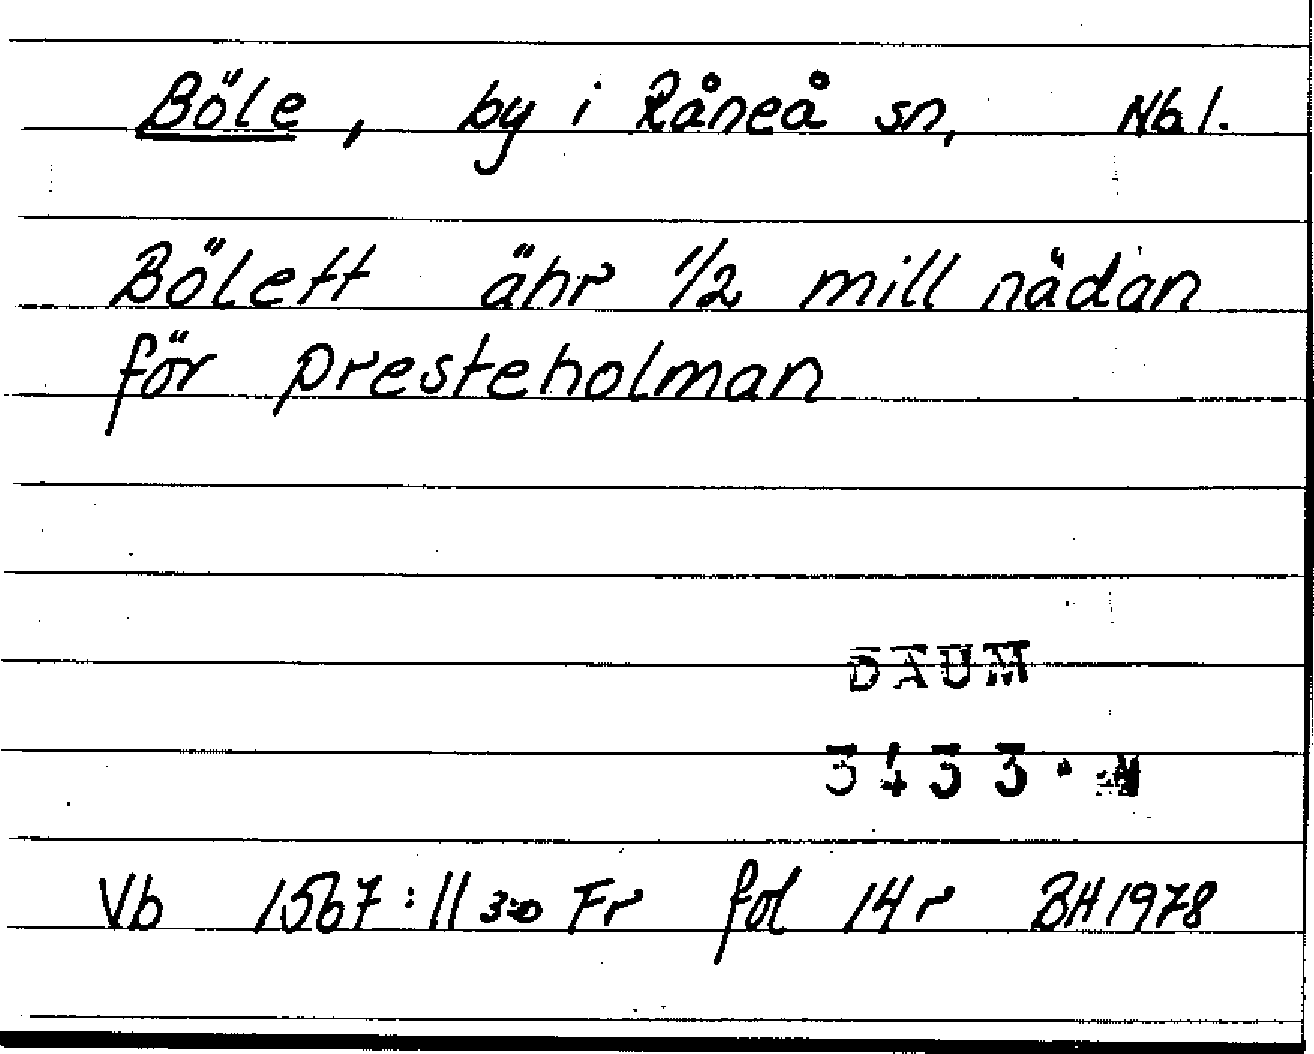 Böle, by i Råneå sn, Nbl.
Bölett ähr 1/2 mill nädan
för presteholman
DAUM
3433
Vb 1567:11 Fr fol 14 r BH 1978